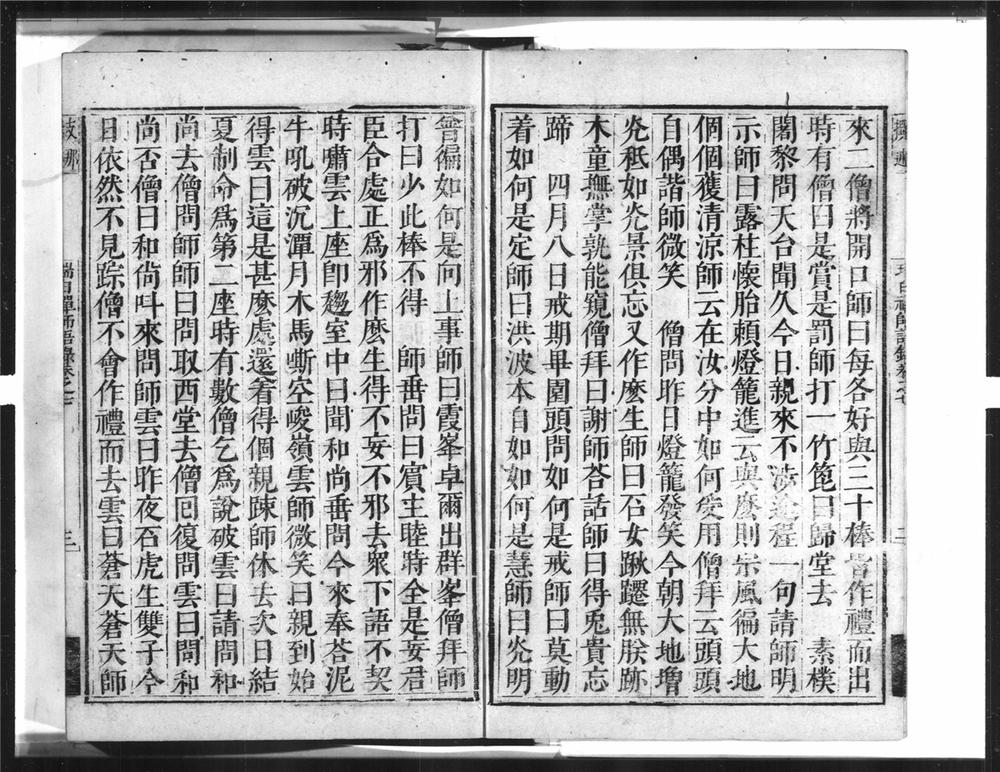 來二僧將開口師曰每各好與三十棒僧作禮而出
時有僧曰是賞是罰師打一竹篦曰歸堂去　素樸
闍黎問天台聞久今日親來不涉途程一句請師明
示師曰露柱懷胎賴燈籠進云與麼則宗風徧大地
個個獲清涼師云在汝分中如何受用僧拜云頭頭
自偶諧師微笑　僧問昨日燈籠發笑今朝大地增
光秪如光景俱忘又作麼生師曰石女踍躚無朕跡
木童撫掌孰能窺僧拜曰謝師荅話師曰得兎貴忘
蹄　四月八日戒期畢園頭問如何是戒師曰莫動
着如何是定師曰洪波本自如如何是慧師曰光明
曾徧如何是向上事師曰霞峯卓爾出群峯僧拜師
打曰少此棒不得　師垂問曰賓主睦時全是妄君
臣合處正為邪作麼生得不妄不邪去衆下語不契
時嘯雲上座卽趨室中曰聞和尚垂問今來奉荅泥
牛吼破沉潭月木馬嘶空峻嶺雲師微笑曰親到始
得雲曰這是甚麼處還著得個親踈師休去次日結
夏制命為第二座時有數僧乞為說破雲曰請問和
尚去僧問師師曰問取西堂去僧回復問雲曰問和
尚否僧曰和尚呌來問師雲曰昨夜石虎生雙子今
日依然不見踪僧不會作禮而去雲曰蒼天蒼天師
瑞白禪師語錄卷之七
三